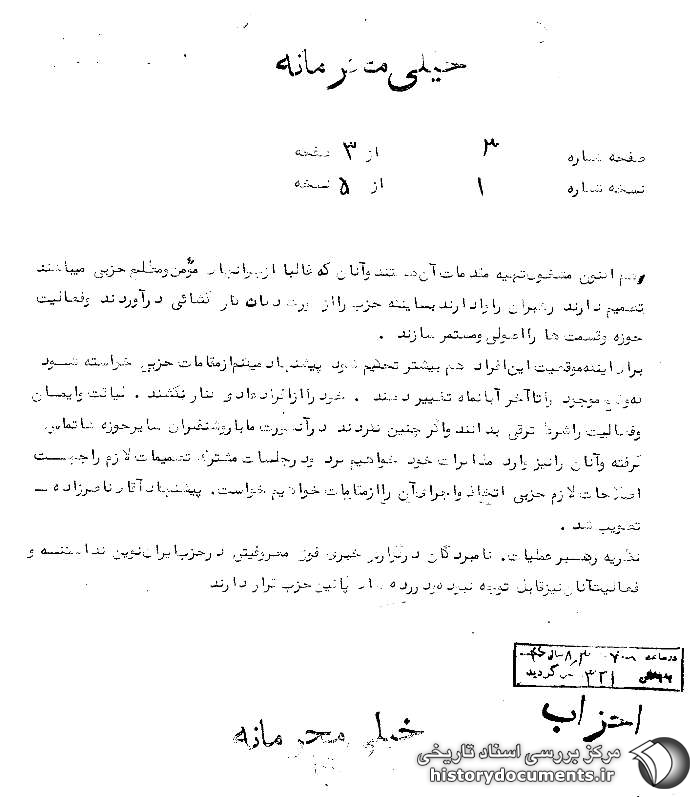 خیلی محرمانه
صفحه شماره ۳ از ۳ صفحه
نسخه شماره ۱ از ۵ نسخه
هم اکنون مشغول تهیه مقدمات آن هستند وآنان که غالبا از جوانهای مؤمن ومطلع حزبی میباشند
تصمیم دارند رهبران را وادارند بیاینکه حزب را از صورت دکان نان گشائی درآوردند وفعالیت
حوزه وقسمت ها را اصولی ومستمر سازند .
برای اینکه موقعیت این افراد هم بیشتر تحکیم شود پیشنهاد میکنم از مقامات حزبی خواسته شود
که وضع موجود را تا آخر آبانماه تغییر دهند . خود را از افراد حزبی کنار نکشند . لیاقت وایمان
وفعالیت را شرط ترقی بدانند واگر چنین نکردند درآنصورت ما با روشنفکران سایر حوزه ها تماس
گرفته وآنان را نیز وارد مذاکرات خود خواهیم کرد ودرجلسات مشترک تصمیمات لازم را جهت
اصلاحات لازم حزبی اتخاذ واجرای آن را از مقامات خواهیم خواست. پیشنهاد آقای ناصرزاده ـ
تصویب شد .
نظریه رهبر عملیات. نامبردگان درگزارش خبری فوق معروفیتی درحزب ایران نوین نداشته و
فعالیت آنان نیز قابل توجه نبوده ودر رده های پائین حزب قرار دارند
در ساعت
۳۲۱ گردید
احزاب
خیلی محرمانه
مرکز بررسی اسناد تاریخی
historydocuments.ir